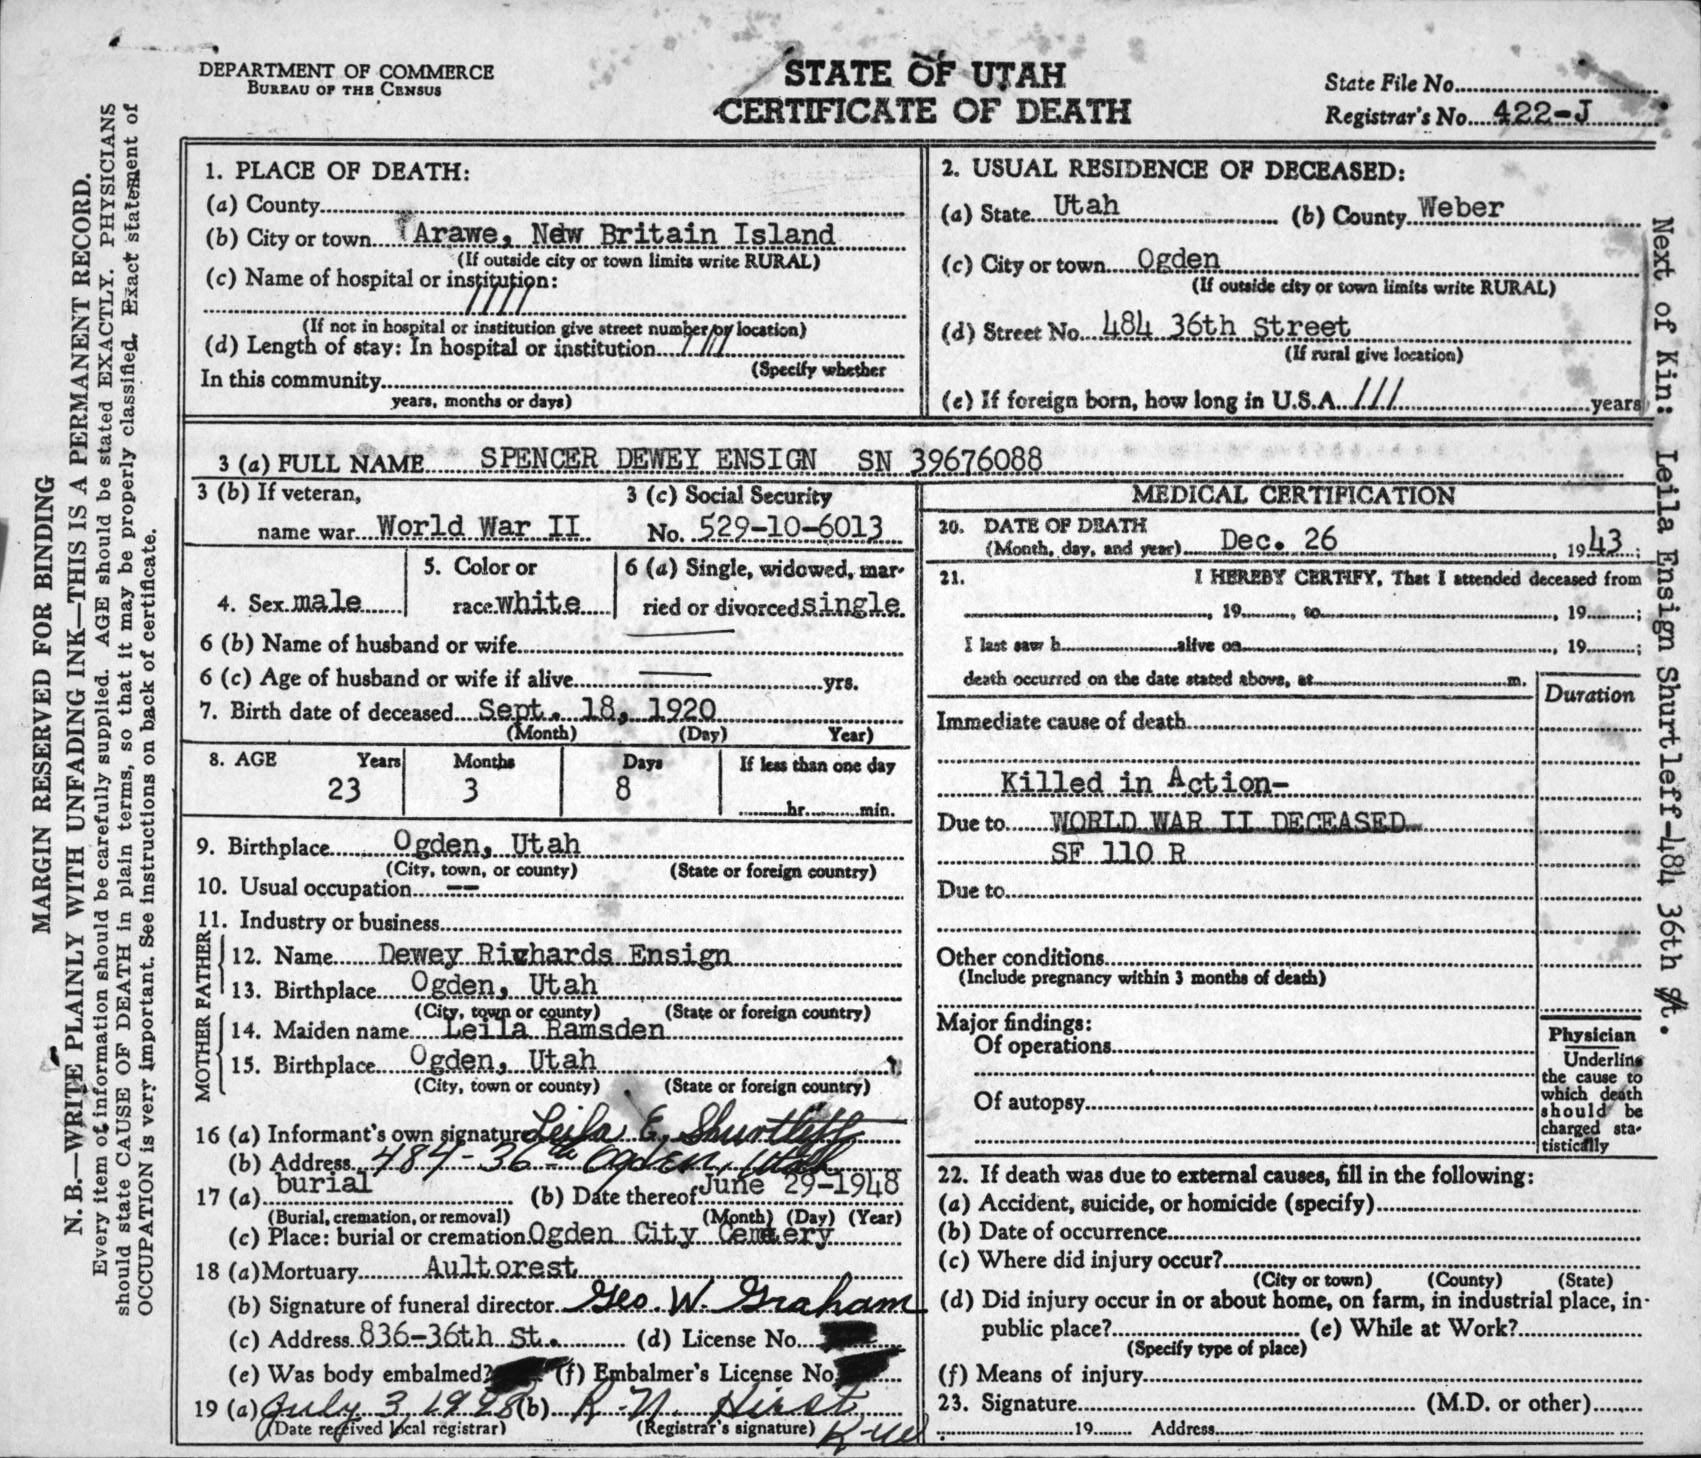 DEPARTMENT OF COMMERCE
BUREAU OF THE CENSUS
STATE OF UTAH
CERTIFICATE OF DEATH
State File No.
Registrar's No. 422-J
MARGIN RESERVED FOR BINDING
N. B.—WRITE PLAINLY WITH UNFADING INK—THIS IS A PERMANENT RECORD.
Every item of information should be carefully supplied. AGE should be stated EXACTLY. PHYSICIANS
should state CAUSE OF DEATH in plain terms, so that it may be properly classified. Exact statement of
OCCUPATION is very important. See instructions on back of certificate.
1. PLACE OF DEATH:
(a) County
(b) City or town Arawe, New Britain Island
(If outside city or town limits write RURAL)
(c) Name of hospital or institution:
////
(If not in hospital or institution give street number or location)
(d) Length of stay: In hospital or institution ////
(Specify whether
In this community
years, months or days)
2. USUAL RESIDENCE OF DECEASED:
(a) State Utah (b) County Weber
(c) City or town Ogden
(If outside city or town limits write RURAL)
(d) Street No. 484 36th Street
(If rural give location)
(e) If foreign born, how long in U.S.A. /// years
Next of Kin: Leila Ensign Shurtleff-484 36th St.
3 (a) FULL NAME SPENCER DEWEY ENSIGN SN 39676088
3 (b) If veteran,
name war World War II
3 (c) Social Security
No. 529-10-6013
4. Sex male
5. Color or
race white
6 (a) Single, widowed, mar-
ried or divorced single
6 (b) Name of husband or wife
6 (c) Age of husband or wife if alive yrs.
7. Birth date of deceased Sept. 18, 1920
(Month) (Day) Year)
8. AGE Years Months Days If less than one day
23 3 8 hr. min.
9. Birthplace Ogden, Utah
(City, town, or county) (State or foreign country)
10. Usual occupation --
11. Industry or business
FATHER
12. Name Dewey Richards Ensign
13. Birthplace Ogden, Utah
(City, town or county) (State or foreign country)
MOTHER
14. Maiden name Leila Ramsden
15. Birthplace Ogden, Utah
(City, town or county) (State or foreign country)
16 (a) Informant's own signature Leila E. Shurtleff
(b) Address 484-36th Ogden, Utah
17 (a) burial (b) Date thereof June 29-1948
(Burial, cremation, or removal) (Month) (Day) (Year)
(c) Place: burial or cremation Ogden City Cemetery
18 (a) Mortuary Aultorest
(b) Signature of funeral director Geo. W. Graham
(c) Address 836-36th St. (d) License No.
(e) Was body embalmed? (f) Embalmer's License No.
19 (a) July 3 1948 (b) R. N. Hirst
(Date received local registrar) (Registrar's signature)
MEDICAL CERTIFICATION
20. DATE OF DEATH
(Month, day, and year) Dec. 26, 1943;
21. I HEREBY CERTIFY, That I attended deceased from
, 19 , to , 19 ;
I last saw h alive on , 19 ;
death occurred on the date stated above, at m.
Duration
Immediate cause of death
Killed in Action-
Due to WORLD WAR II DECEASED
SF 110 R
Due to
Other conditions
(Include pregnancy within 3 months of death)
Major findings:
Of operations
Of autopsy
Physician
Underline
the cause to
which death
should be
charged sta-
tistically
22. If death was due to external causes, fill in the following:
(a) Accident, suicide, or homicide (specify)
(b) Date of occurrence
(c) Where did injury occur?
(City or town) (County) (State)
(d) Did injury occur in or about home, on farm, in industrial place, in-
public place? (e) While at Work?
(Specify type of place)
(f) Means of injury
23. Signature (M.D. or other)
19 Address